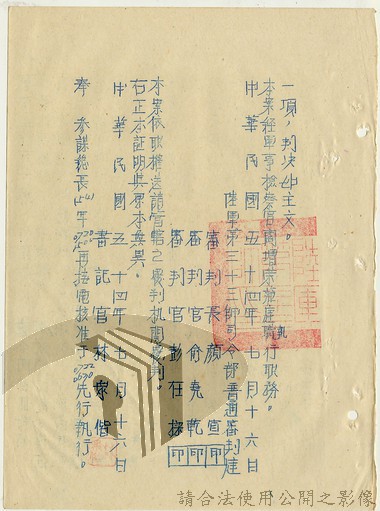 一項，判決如主文。
本案經軍事檢察官周增榮蒞庭執行職務。
中華民國五十四年七月十六日
陸軍第三十三師司令部普通審判庭
審判長顏宣
審判官俞堯乾印
審判官彭在 印印
本案依職權送請管轄之覆判機關覆判。
右正本証明與原本無異。
中華民國五十四年七月十六日
書記官林家偕
奉 參謀總長(54)年 再 電核准予 先行執行。
請合法使用公開之影像